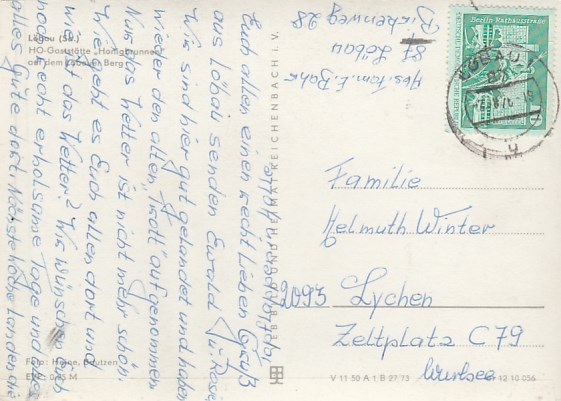 Löbau (Sa.)
HO-Gaststätte „Honigbrunnen"
auf dem Löbauer Berg
Euch allen einen recht lieben Gruß
aus Löbau senden Ewald u. Rosi
Wir sind hier gut gelandet und haben
wieder den alten „Trott" aufgenommen
Nur das Wetter ist nicht mehr schön.
Wie geht es Euch allen dort und
was macht das Wetter? Wir wünschen Euch
noch recht erholsame Tage und
alles Gute dort
Foto: Heine, Bautzen
EVP 0,25 M
VEB BILD UND HEIMAT REICHENBACH I. V.
Abs. Fam. E.
87 Löbau
28
Berlin-Rathausstraße
LÖBAU
Familie
Helmuth Winter
2093 Lychen
Zeltplatz C79
Wurlsee
V 11 50 A 1 B 27/73
12 10 056